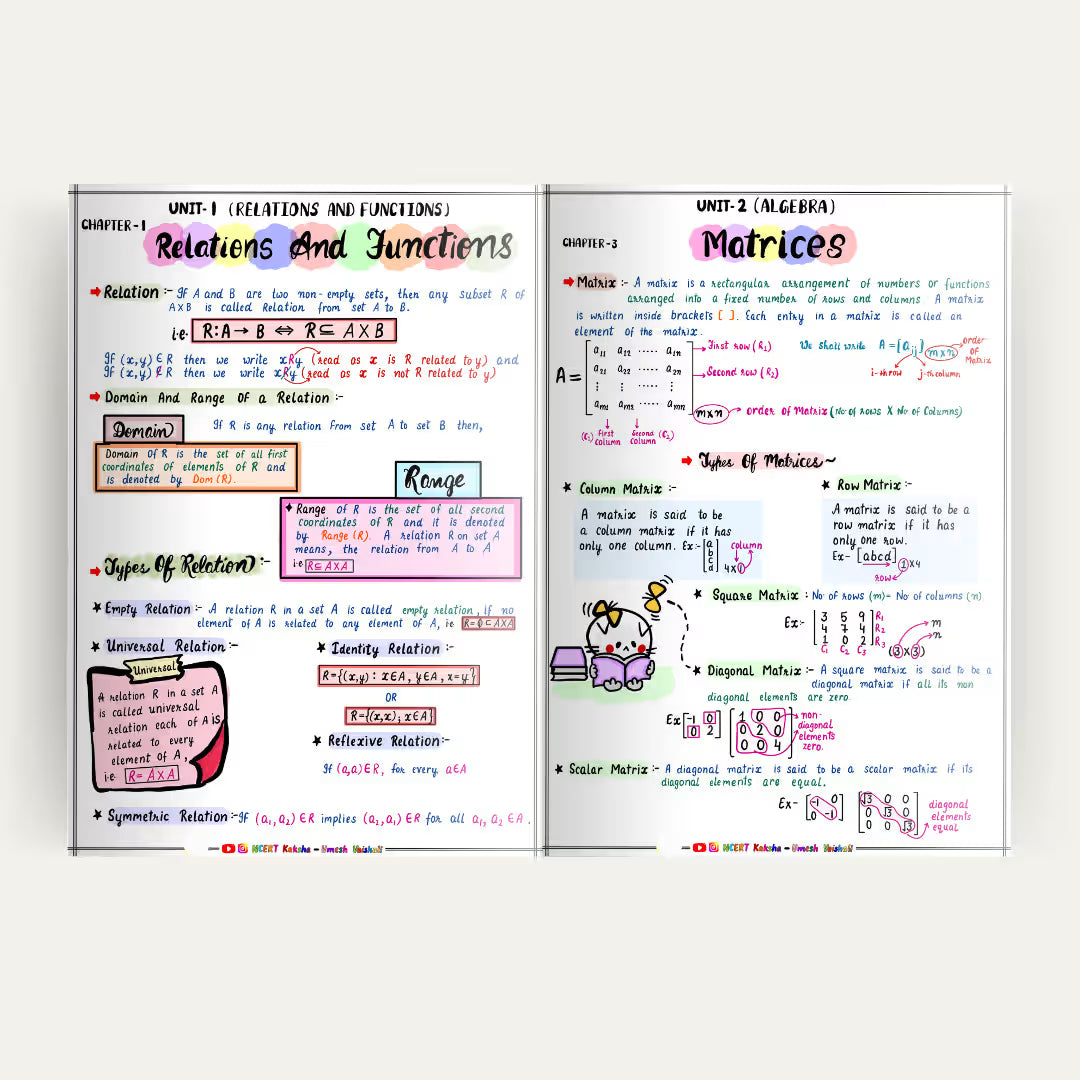 UNIT-1 (RELATIONS AND FUNCTIONS)
CHAPTER-1
Relations And Functions
Relation :- If A and B are two non-empty sets, then any subset R of
A×B is called Relation from set A to B.
i.e. R:A→ B ⇔ R⊆ A×B
If (x,y) ∈ R then we write xRy (read as x is R related to y) and
If (x,y) ∉ R then we write xR̸y (read as x is not R related to y)
Domain And Range Of a Relation :-
Domain
If R is any relation from set A to set B then,
Domain Of R is the set of all first
coordinates of elements of R and
is denoted by Dom(R).
Range
Range of R is the set of all second
coordinates of R and it is denoted
by Range (R). A relation R on set A
means, the relation from A to A
i.e R⊆A×A
Types Of Relation :-
Empty Relation :- A relation R in a set A is called empty relation, if no
element of A is related to any element of A, i.e R=Φ⊂A×A
Universal Relation:-
Universal
A relation R in a set A
is called universal
relation each of A is
related to every
element of A,
i.e. R= A×A
Identity Relation :-
R={(x,y) : x∈A, y∈A, x=y}
OR
R={(x,x); x∈A}
Reflexive Relation:-
If (a,a)∈R, for every a∈A
Symmetric Relation:-If (a₁,a₂) ∈R implies (a₂,a₁)∈R for all a₁, a₂ ∈A.
NCERT Kaksha - Umesh Vaishali
UNIT-2 (ALGEBRA)
CHAPTER-3
Matrices
Matrix :- A matrix is a rectangular arrangement of numbers or functions
arranged into a fixed number of rows and columns. A matrix
is written inside brackets [ ]. Each entry in a matrix is called an
element of the matrix.
A=
a₁₁ a₁₂ ..... a₁ₙ
a₂₁ a₂₂ ..... a₂ₙ
⋮ ⋮ ⋮
aₘ₁ aₘ₂ ..... aₘₙ
m×n
First row (R₁)
Second row (R₂)
We shall write A=[aᵢⱼ] m×n
order
Of
Matrix
i-th row j-th column
order of Matrix (No of rows X No of Columns)
(C₁) First
Column
Second (C₂)
Column
Types Of Matrices~
Column Matrix :-
A matrix is said to be
a column matrix if it has
only one column. Ex:- [a b c d] 4×1
column
Row Matrix :-
A matrix is said to be a
row matrix if it has
only one row.
Ex- [abcd] 1×4
row
Square Matrix : No of rows (m)= No of columns (n)
Ex:-
3 5 9 R₁
4 7 4 R₂
1 0 2 R₃
C₁ C₂ C₃ (3×3)
m
n
Diagonal Matrix :- A square matrix is said to be a
diagonal matrix if all its non
diagonal elements are zero.
Ex
-1 0
0 2
1 0 0
0 2 0
0 0 4
non-
diagonal
elements
zero.
Scalar Matrix :- A diagonal matrix is said to be a scalar matrix if its
diagonal elements are equal.
Ex-
-1 0
0 -1
√3 0 0
0 √3 0
0 0 √3
diagonal
elements
equal
NCERT Kaksha - Umesh Vaishali